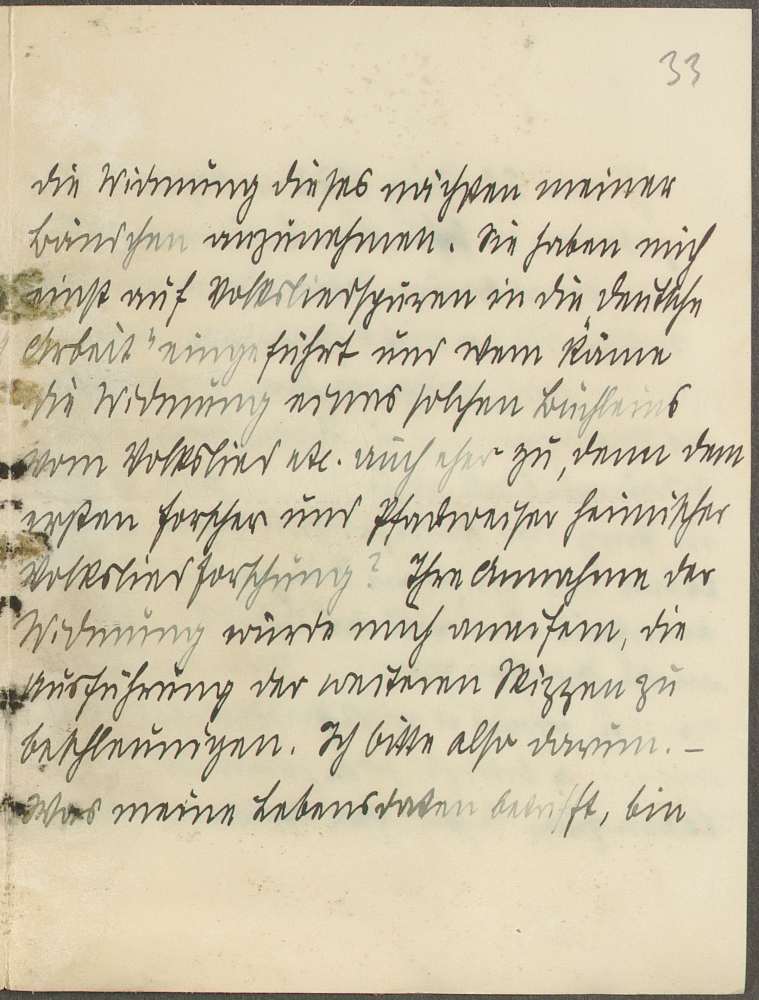 33
die Widmung dieses nächsten meiner
Bändchen anzunehmen. Sie haben mich
einst auf Volksliedspuren in die deutsche
Arbeit" eingeführt und wem käme
die Widmung eines solchen Büchleins
vom Volkslied etc. auch eher zu, denn dem
ersten Forscher und Pfadweiser heimischer
Volksliedforschung? Ihre Annahme der
Widmung würde mich aneifern, die
Ausführung der weiteren Skizzen zu
beschleunigen. Ich bitte also darum. –
Was meine Lebensdaten betrifft, bin